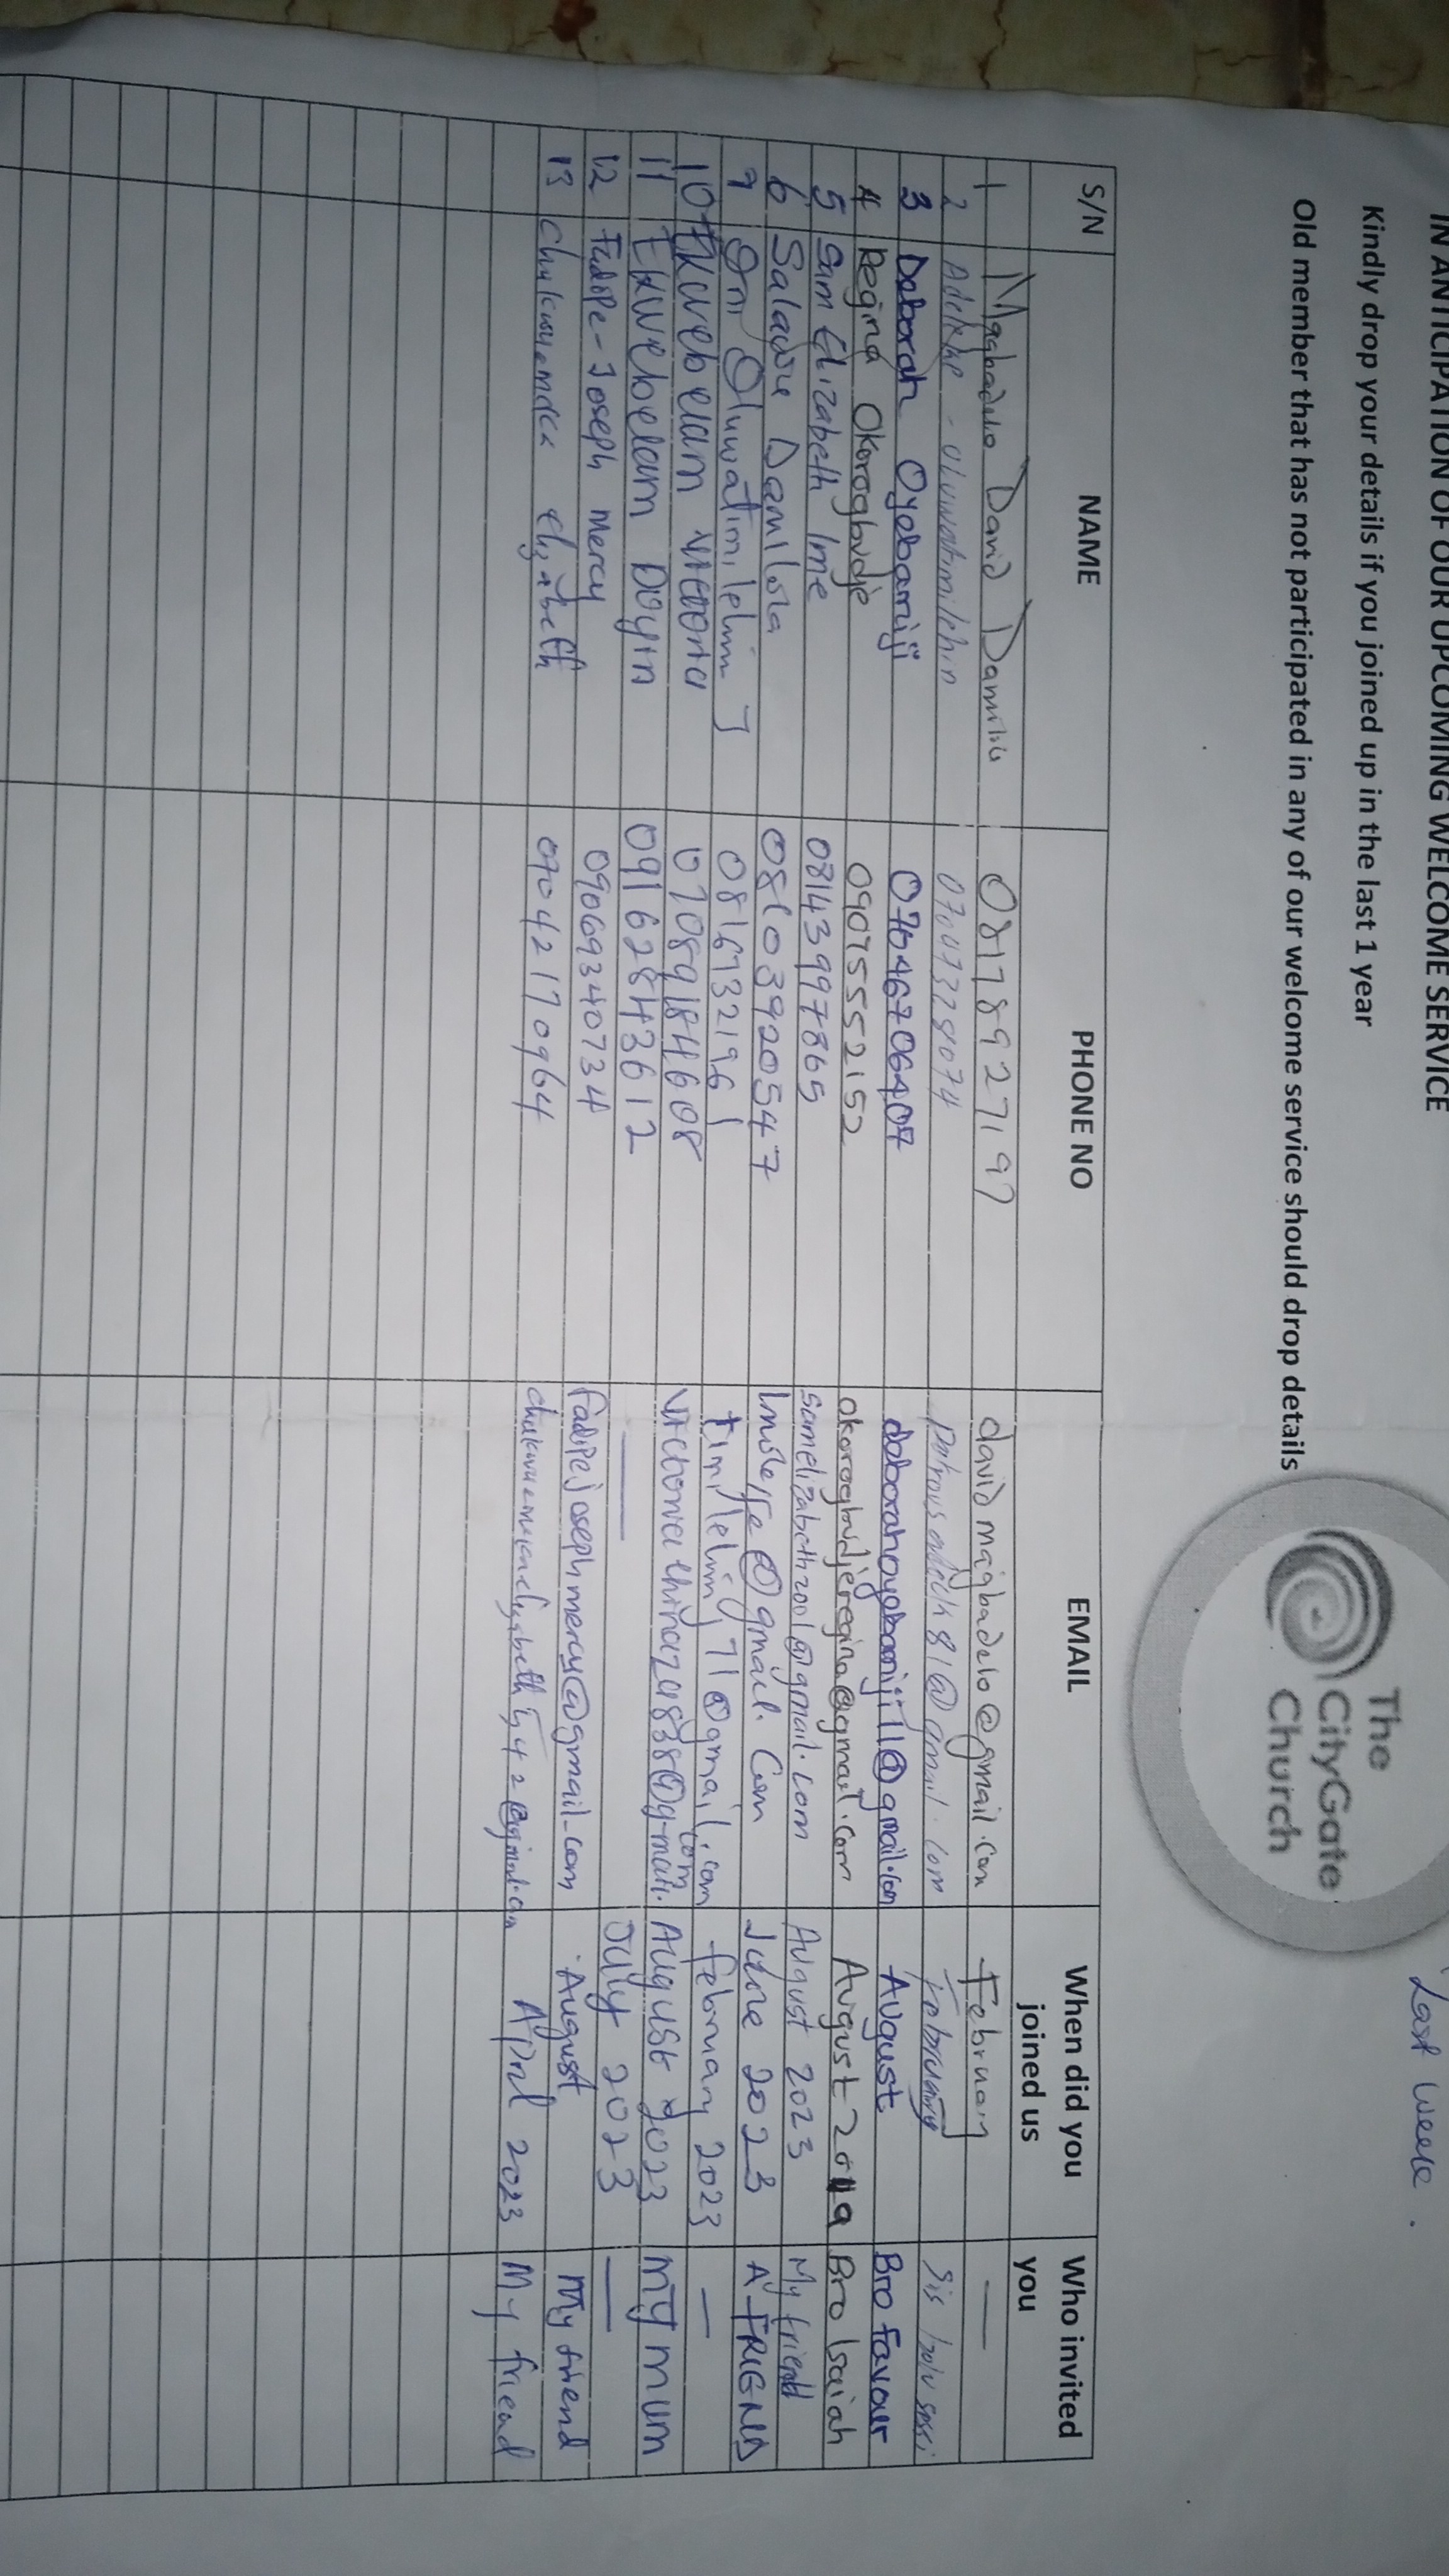 Last week.
IN ANTICIPATION OF OUR UPCOMING WELCOME SERVICE
Kindly drop your details if you joined up in the last 1 year
Old member that has not participated in any of our welcome service should drop details
The
CityGate
Church
S/N NAME PHONE NO EMAIL When did you joined us Who invited you
1 Magbadelo David Damilola 08178927197 davidmagbadelo@gmail.com February —
2 Adeleke - Oluwatimilehin @gmail.com February Sis
3 Deborah Oyebamiji deborahoyebamiji11@gmail.com August Bro Favour
4 Regina Okorogbudje 09075552152 okorogbudjeregina@gmail.com August Bro Isaiah
5 Sam Elizabeth Ime 08143997865 samelizabeth2001@gmail.com August 2023 My friend
6 Salawu Damilola 08103920547 @gmail.com June 2023 A FRIEND
7 Oni Oluwatimilehin J 08167321961 timilehinj71@gmail.com february 2023 —
10 Ekwebelam Victoria 07089184608 August 2023 my mum
11 Ekwebelam Doyin 09162843612 — July 2023 —
12 Fadipe-Joseph Mercy 09069340734 fadipejosephmercy@gmail.com August My friend
13 Chukwuemeka Elizabeth 09042170964 April 2023 My friend